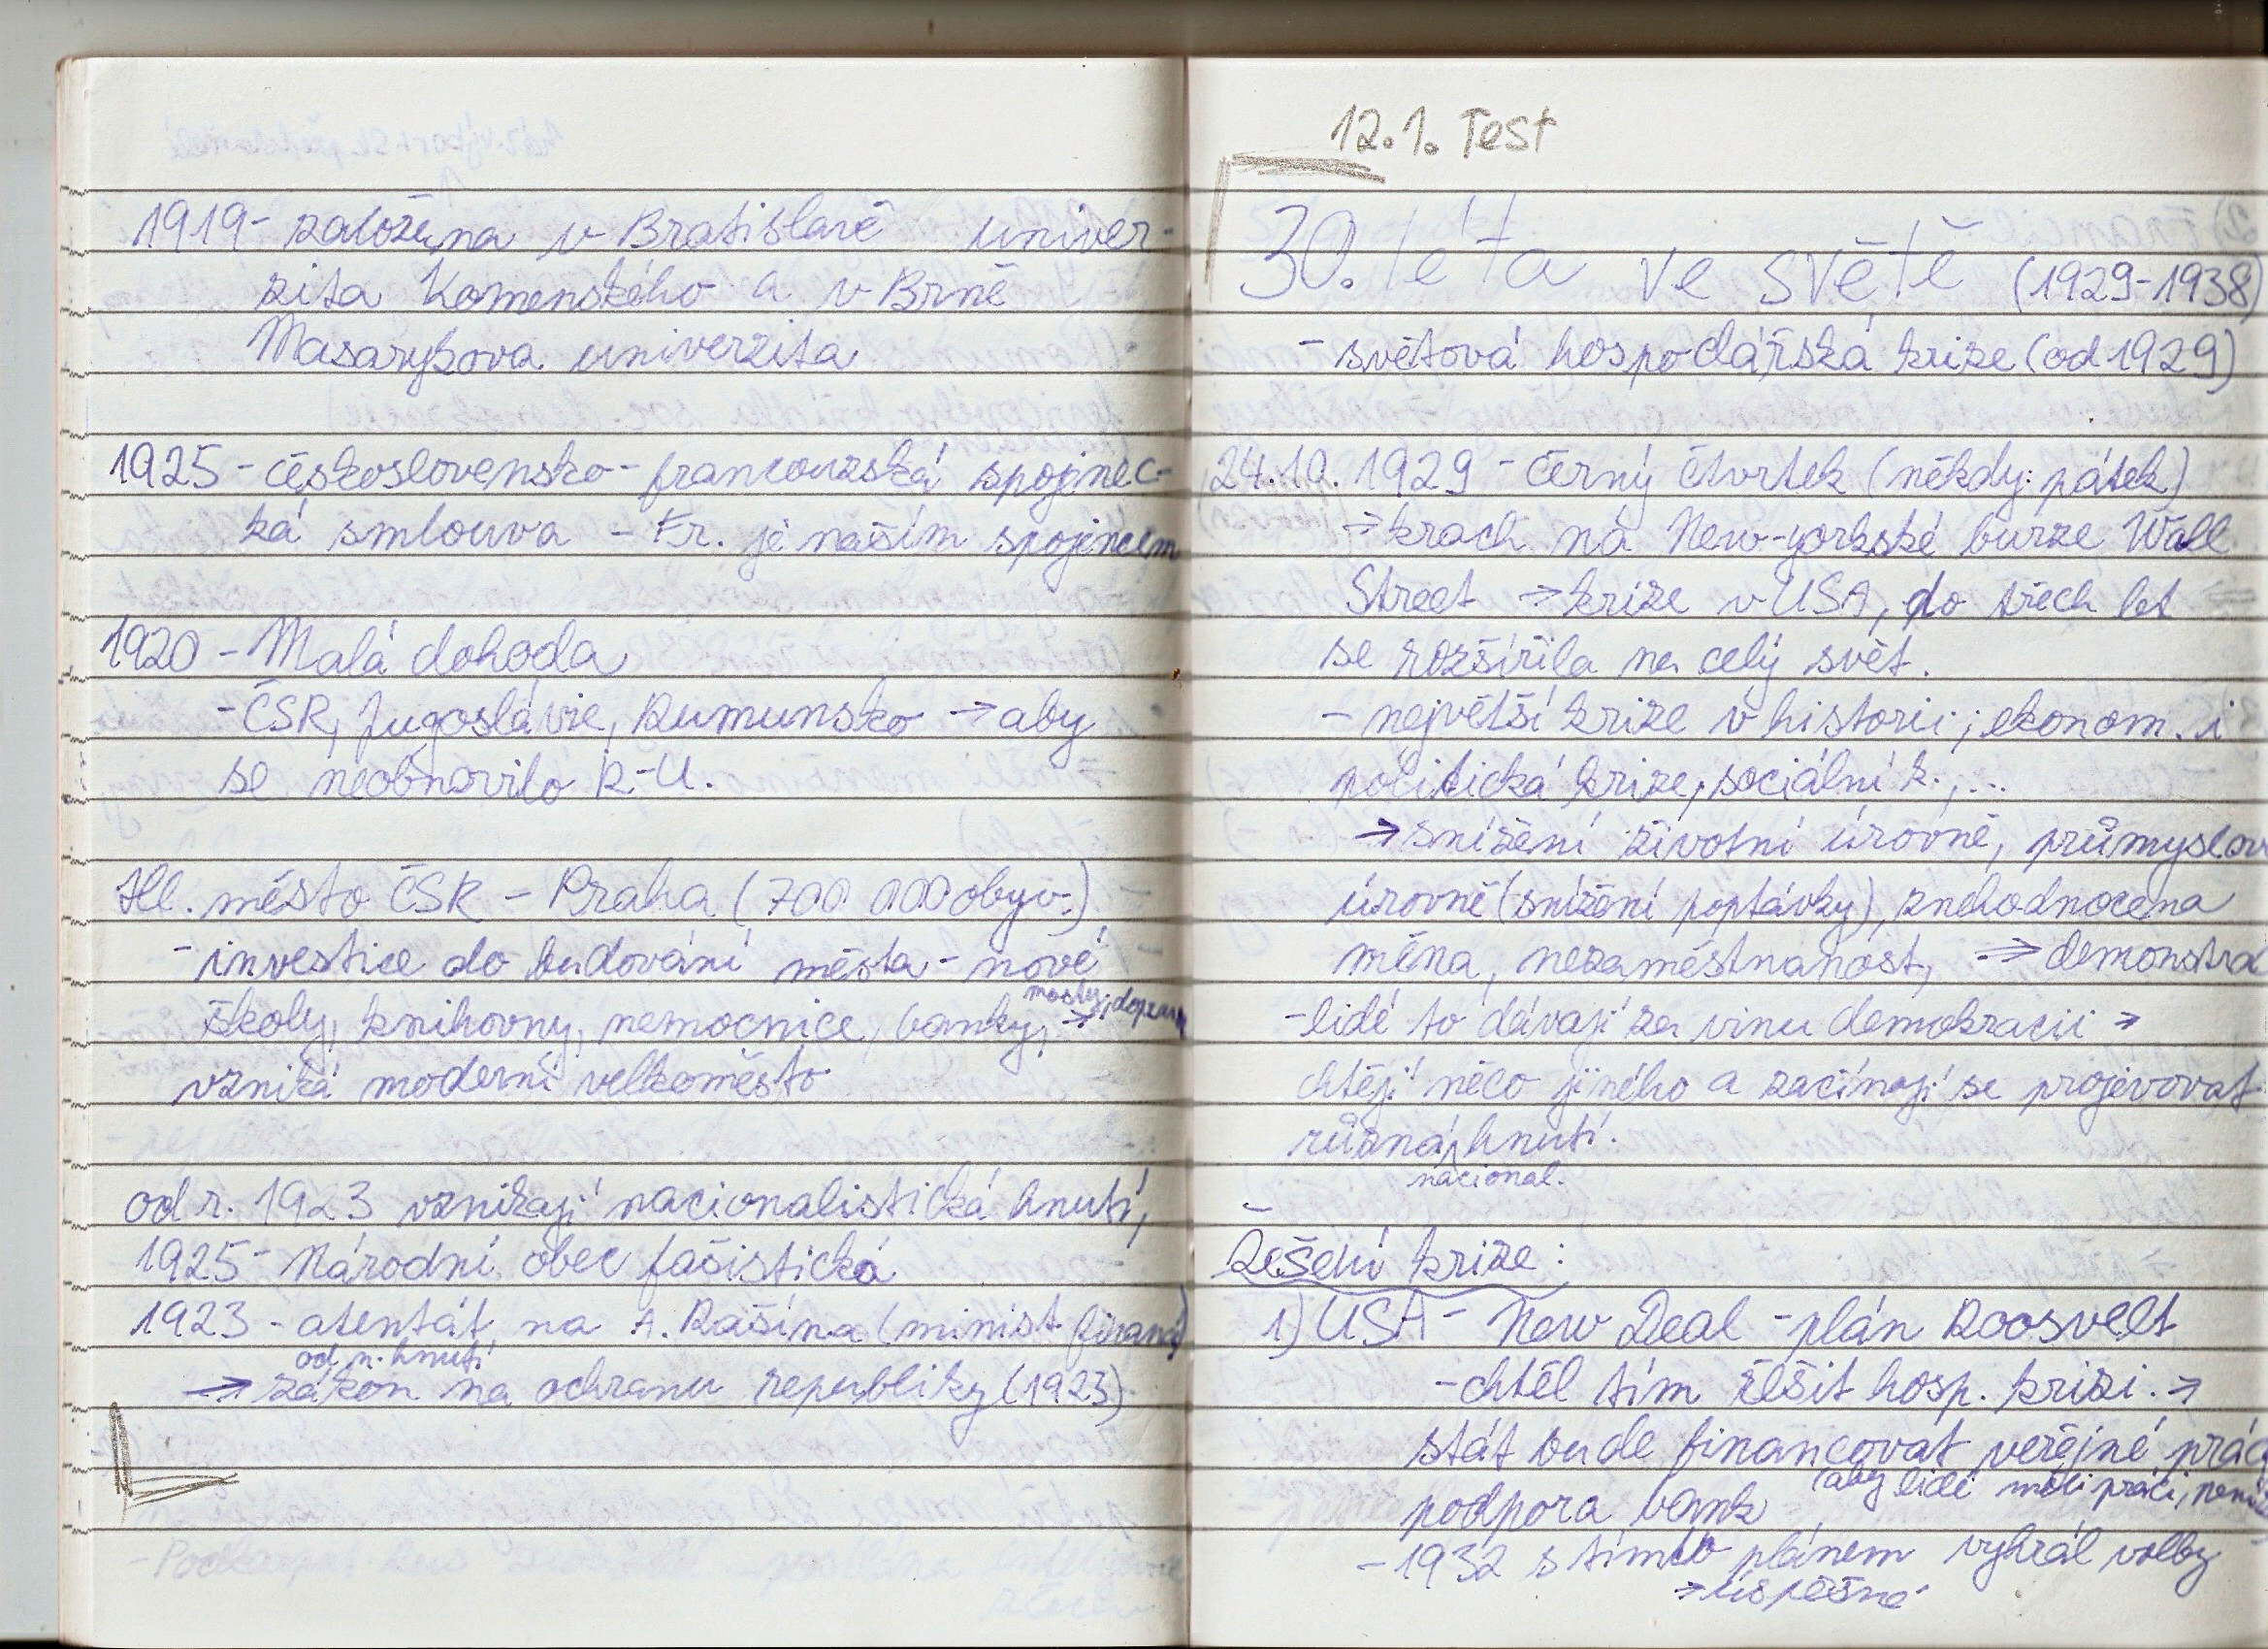 1919 - založena v Bratislavě univer-
zita Komenského a v Brně
Masarykova univerzita
1925 - československo - francouzská spojenec-
ká smlouva - Fr. je naším spojencem
1920 - Malá dohoda
- ČSR, Jugoslávie, Rumunsko → aby
se neobnovilo R-U.
Hl. město ČSR - Praha (700 000 obyv.)
- investice do budování města - nové
mosty, doprava
školy, knihovny, nemocnice, banky, →
vzniká moderní velkoměsto
od r. 1923 vznikají nacionalistická hnutí,
1925 - Národní obec fašistická
1923 - atentát na A. Rašína (minist. financí)
od n. hnutí
→ zákon na ochranu republiky (1923)
12.1. Test
30. léta ve světě (1929-1938)
- světová hospodářská krize (od 1929)
24.10. 1929 - černý čtvrtek (někdy: pátek)
→ krach na New-yorkské burze Wall
Street → krize v USA, do třech let
se rozšířila na celý svět.
- největší krize v historii; ekonom. i
politická krize, sociální k., ...
→ snížení životní úrovně, průmyslov
úrovně (snížení poptávky), znehodnocena
měna, nezaměstnanost, → demonstra
- lidé to dávají za vinu demokracii →
chtějí něco jiného a začínají se projevovat
různá hnutí.
nacional.
Řešení krize:
1) USA - New Deal - plán Roosvelt
- chtěl tím řešit hosp. krizi. →
stát bude financovat veřejné prác
(aby lidé měli práci,
podpora bank
- 1932 s tímto plánem vyhrál volby
→ úspěšné